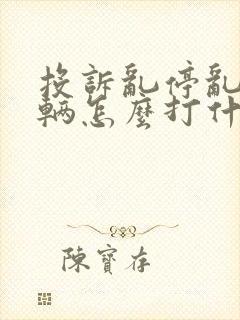 投訴亂停亂
輛怎麼打什
陳寶存